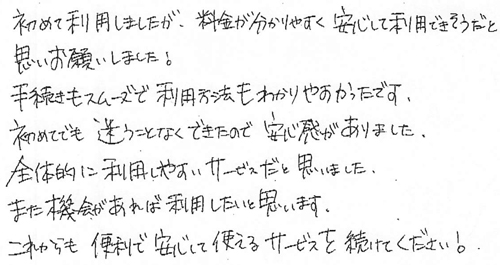 初めて利用しましたが、料金が分かりやすく安心して利用できそうだと
思いお願いしました！
手続きもスムーズで利用方法もわかりやすかったです。
初めてでも迷うことなくできたので安心感がありました。
全体的に利用しやすいサービスだと思いました。
また機会があれば利用したいと思います。
これからも便利で安心して使えるサービスを続けてください！